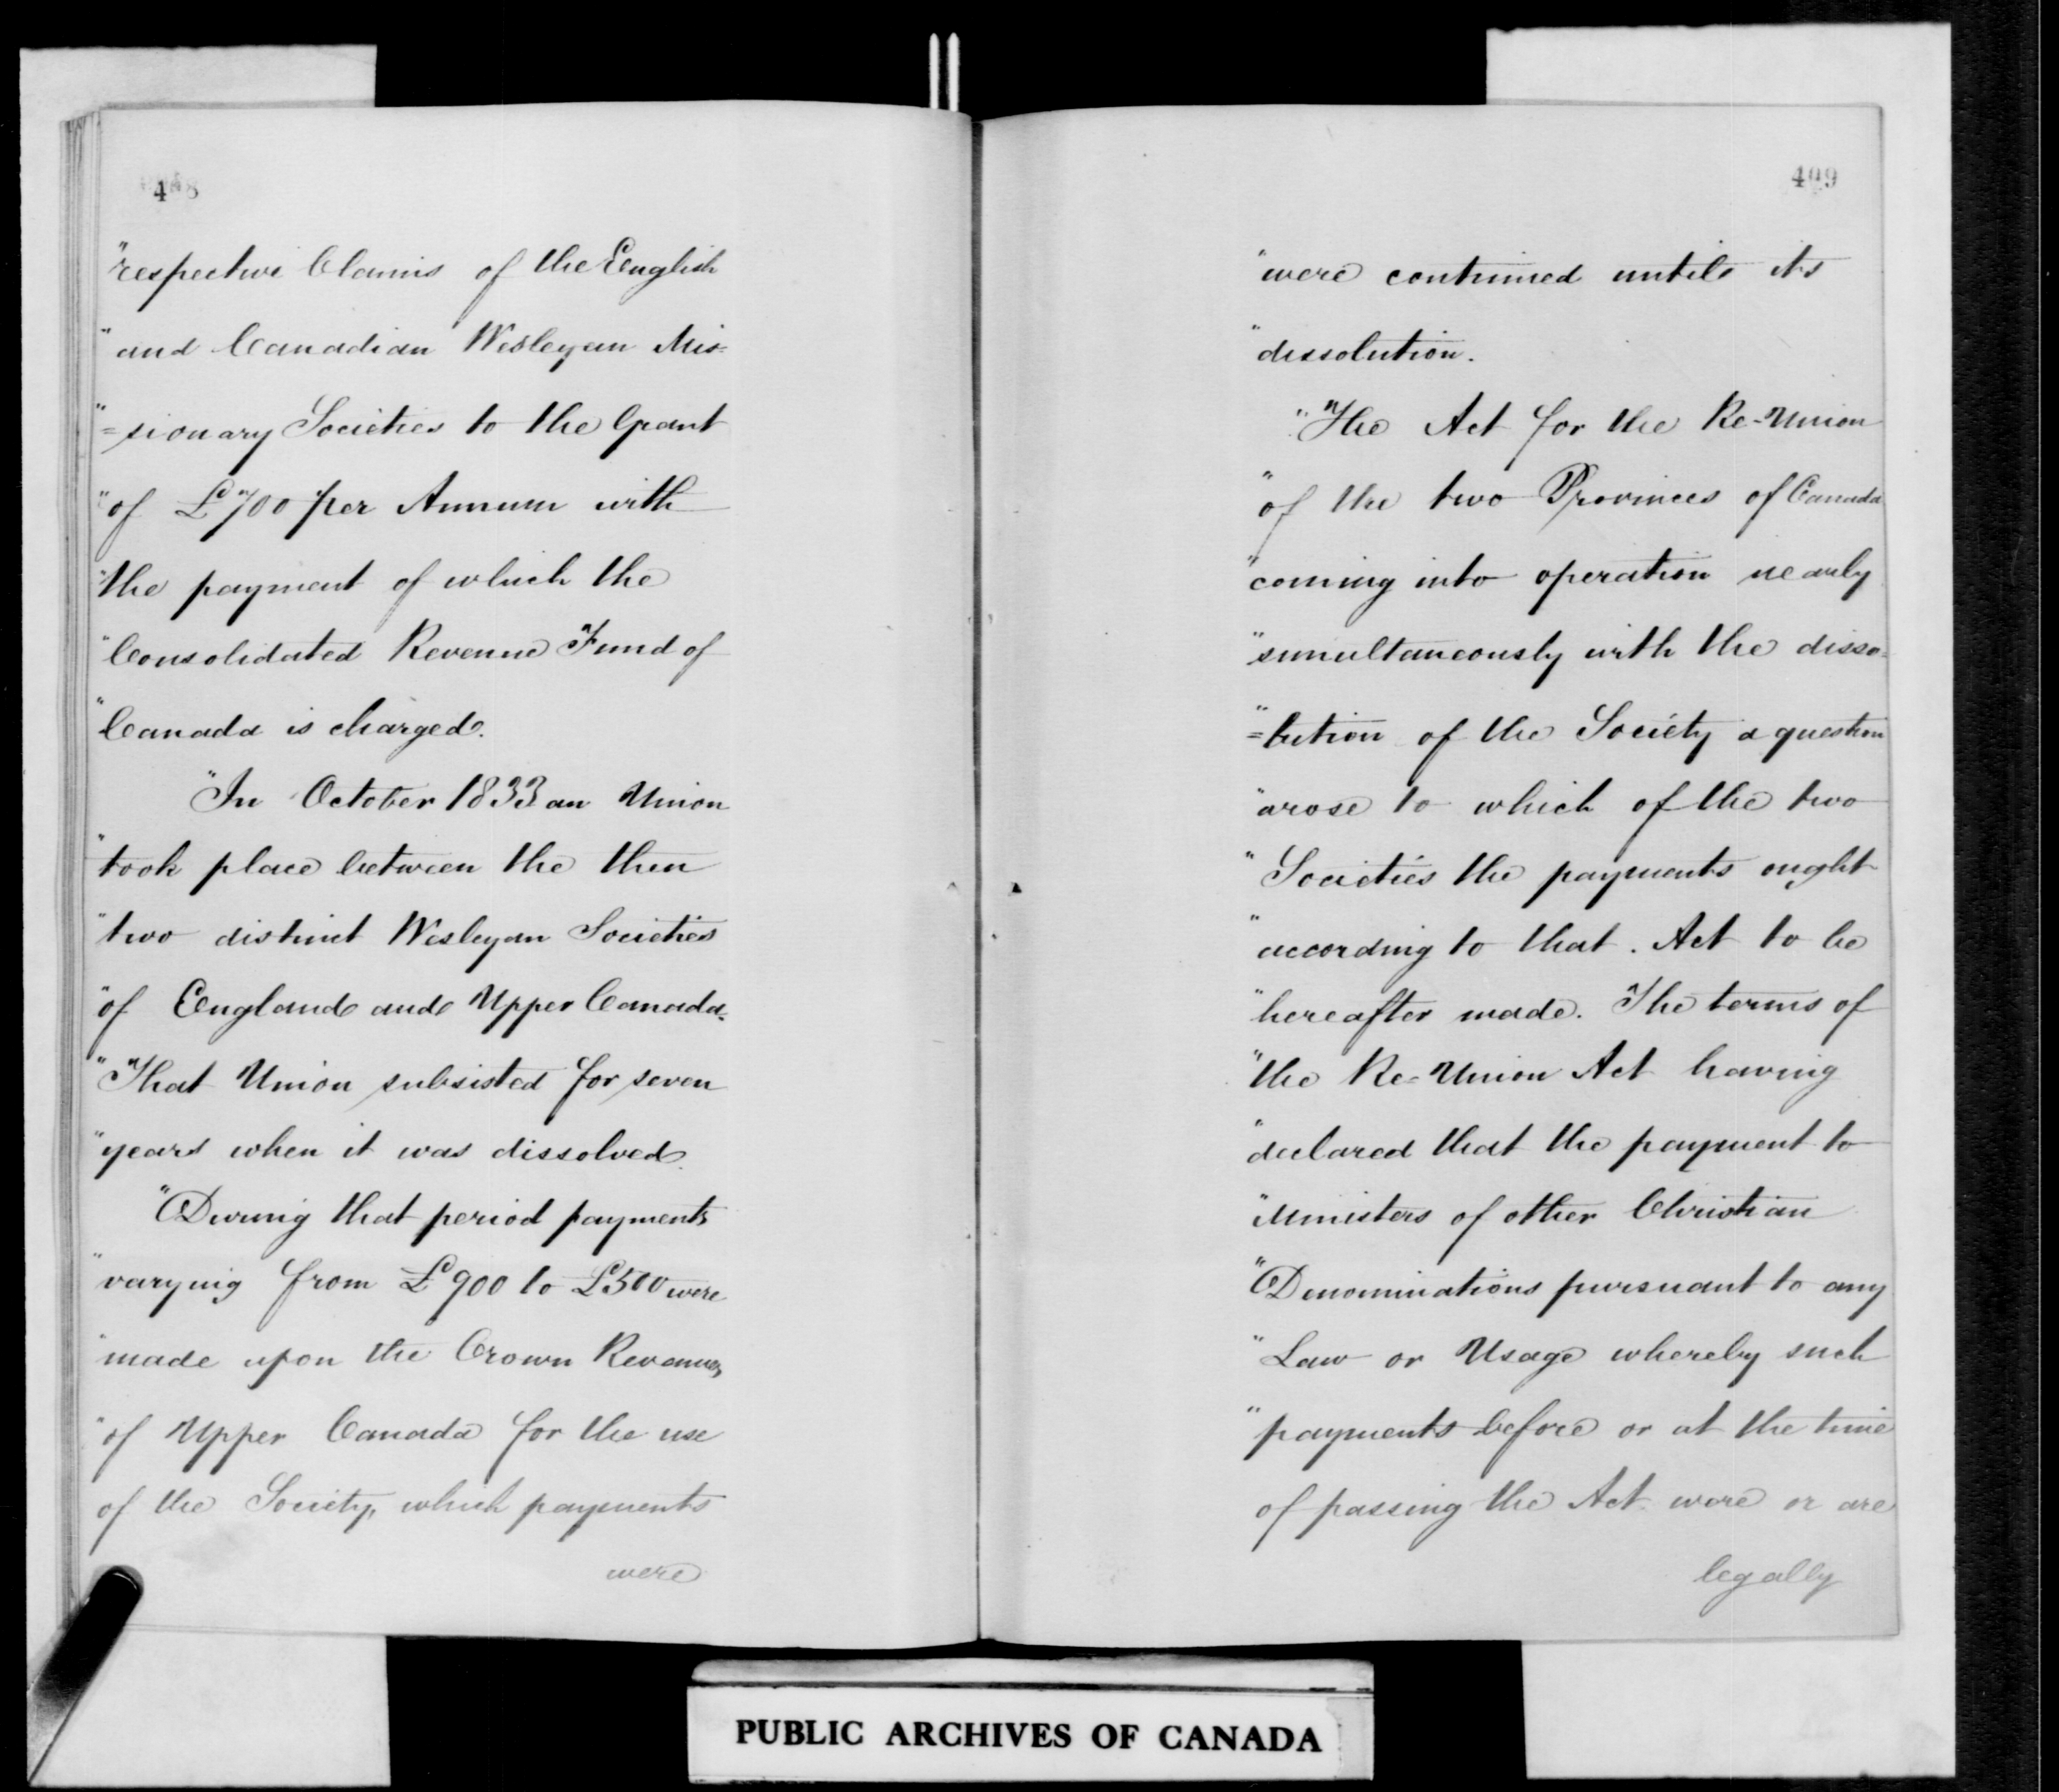 408
"respective Claims of the English
"and Canadian Wesleyan Mis=
"=sionary Societies to the Grant
"of £700 per Annum with
"the payment of which the
"Consolidated Revenue Fund of
"Canada is charged.
"In October 1833 an Union
"took place between the then
"two distinct Wesleyan Societies
"of England and Upper Canada.
"That Union subsisted for seven
"years when it was dissolved.
"During that period payments
"varying from £900 to £500 were
"made upon the Crown Revenues
"of Upper Canada for the use
of the Society, which payments
were
409
"were continued until its
"dissolution.
"The Act for the Re-Union
"of the two Provinces of Canada
"coming into operation nearly
"simultaneously with the disso=
"=lution of the Society a question
"arose to which of the two
"Societies the payments ought
"according to that Act to be
"hereafter made. The terms of
"the Re-Union Act having
"declared that the payment to
"Ministers of other Christian
"Denominations pursuant to any
"Law or Usage whereby such
"payments before or at the time
of passing the Act were or are
legally
PUBLIC ARCHIVES OF CANADA